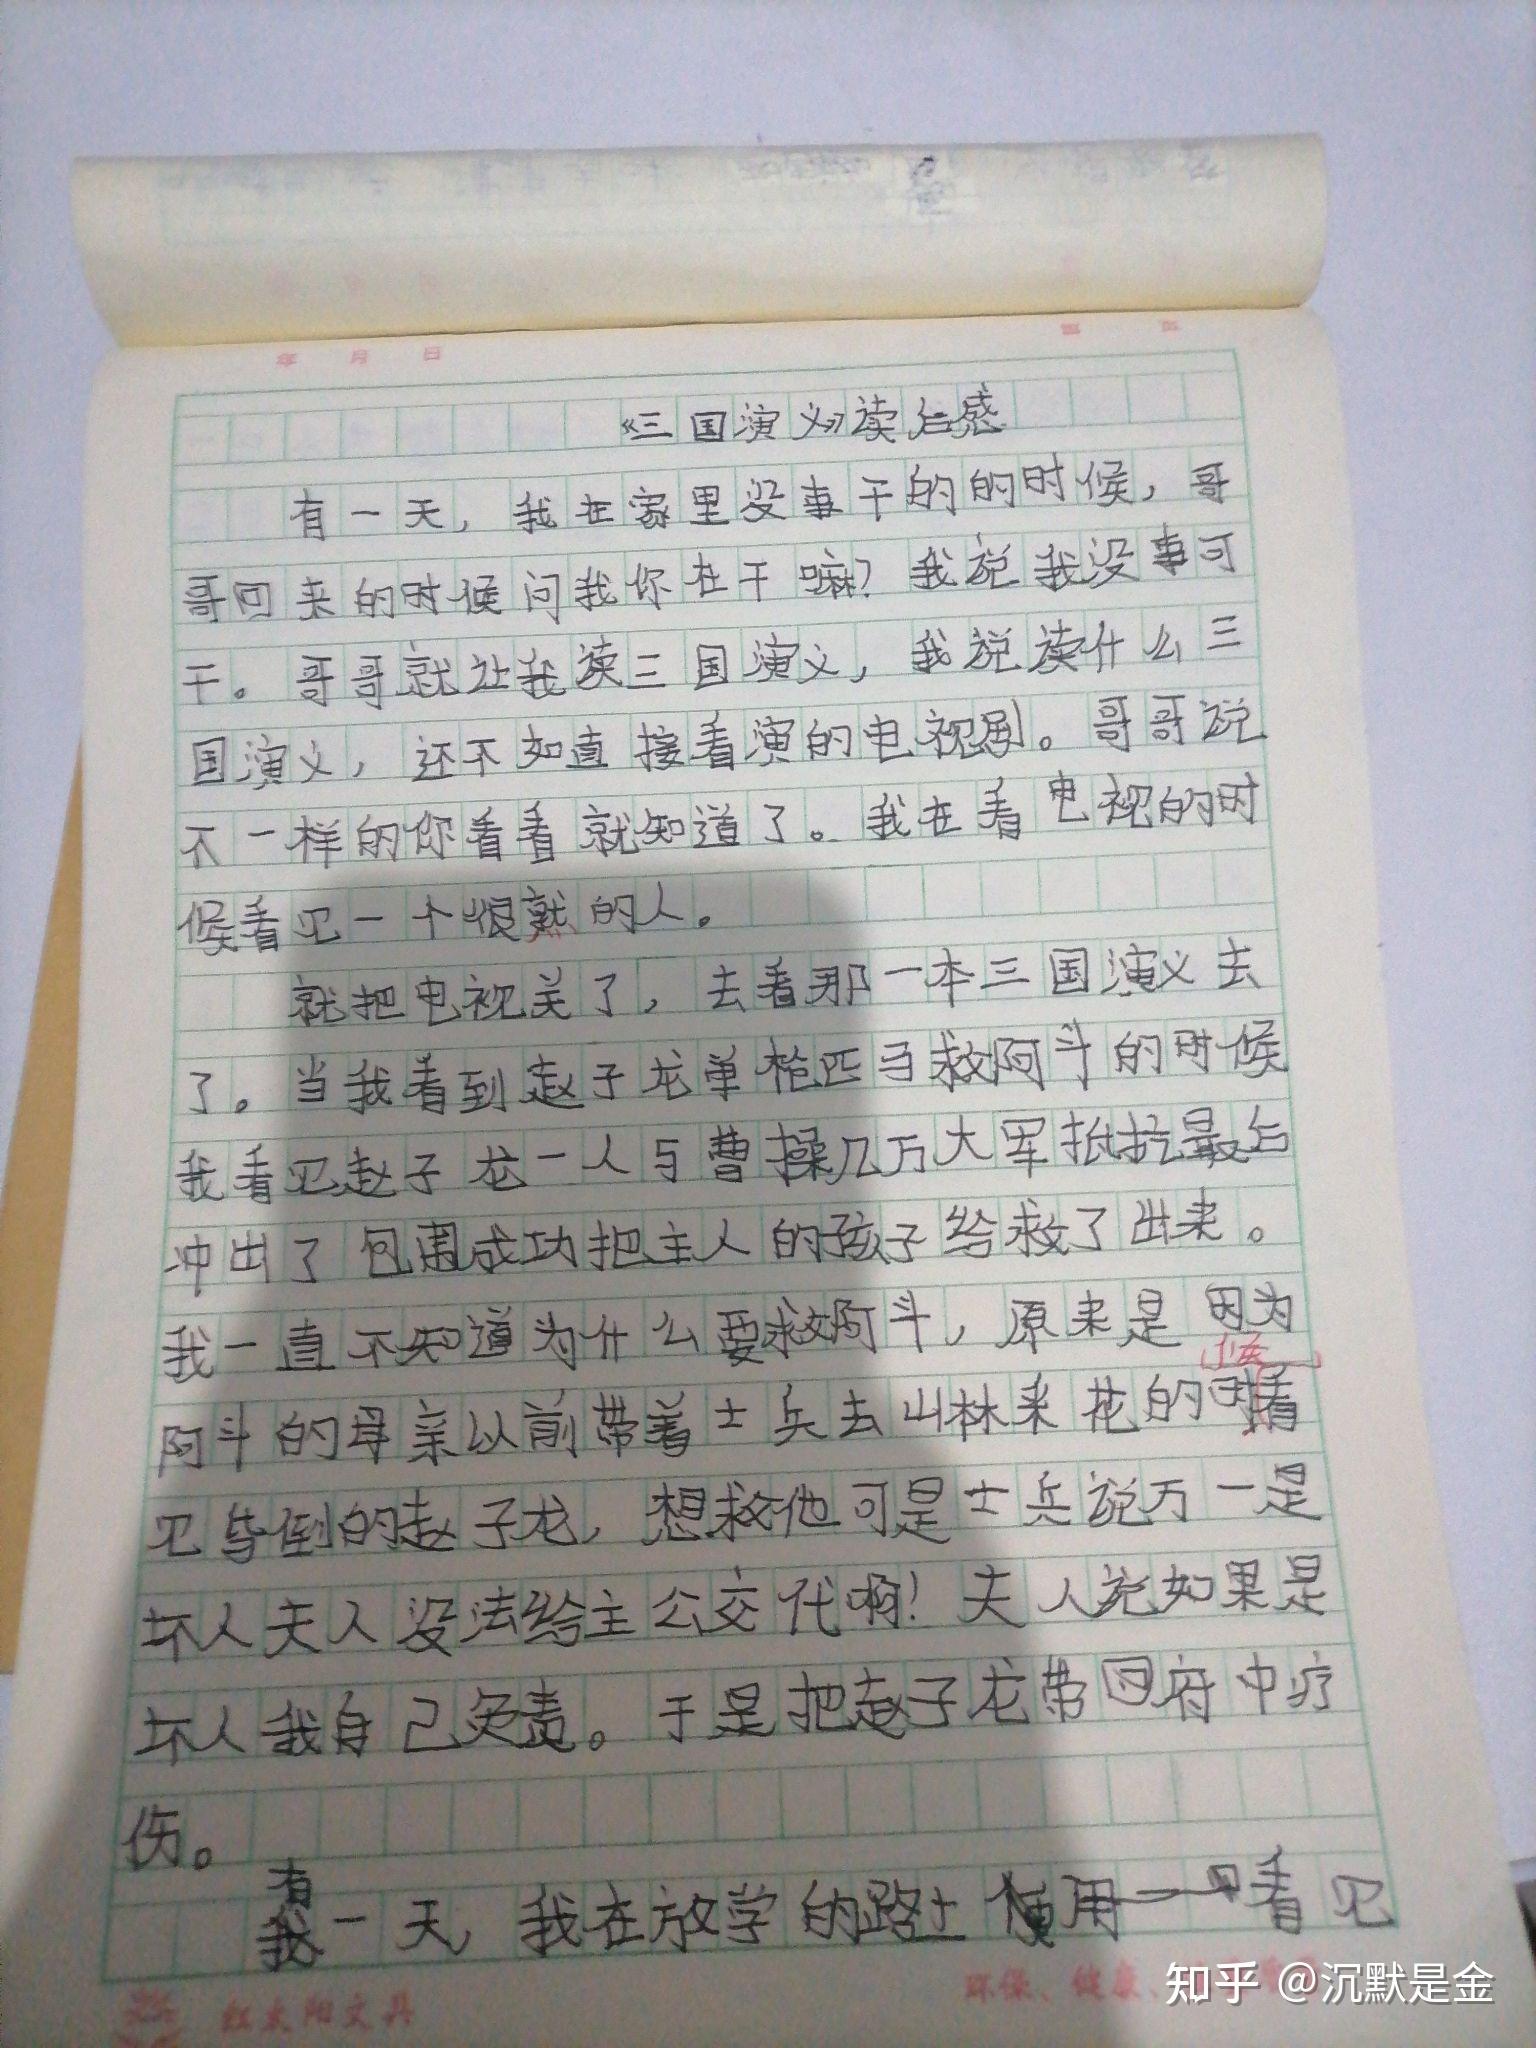 年 月 日
《三国演义》读后感
有一天，我在家里没事干的的时候，哥
哥回来的时候问我你在干嘛？我说我没事可
干。哥哥就让我读三国演义，我说读什么三
国演义，还不如直接看演的电视剧。哥哥说
不一样的你看看就知道了。我在看电视的时
候看见一个很熟的人。
就把电视关了，去看那一本三国演义去
了。当我看到赵子龙单枪匹马救阿斗的时候
我看见赵子龙一人与曹操几万大军抵抗最后
冲出了包围成功把主人的孩子给救了出来。
我一直不知道为什么要救阿斗，原来是因为
阿斗的母亲以前带着士兵去山林来花的时候看
见昏倒的赵子龙，想救他可是士兵说万一是
坏人夫人没法给主公交代啊！夫人说如果是
坏人我自己负责。于是把赵子龙带回府中疗
伤。
有一天，我在放学的路上 看见
红太阳文具
环保、健康、
知乎 @沉默是金